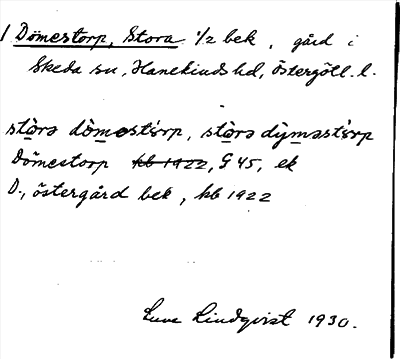 1 Dömestorp, Stora 1/2 bek, gård i
Skeda sn, Hanekinds hd, Östergötl. l.
stòrə dömest'ɜrp, stòrə dyməst'ɜrp
Dömestorp kb 1922, G 45, ek
D., östergård bek, kb 1922
Lindqvist 1930.